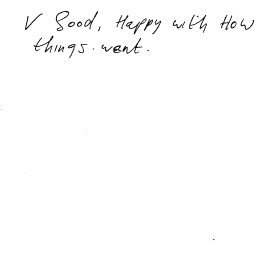 V Good, Happy with How
things. went.